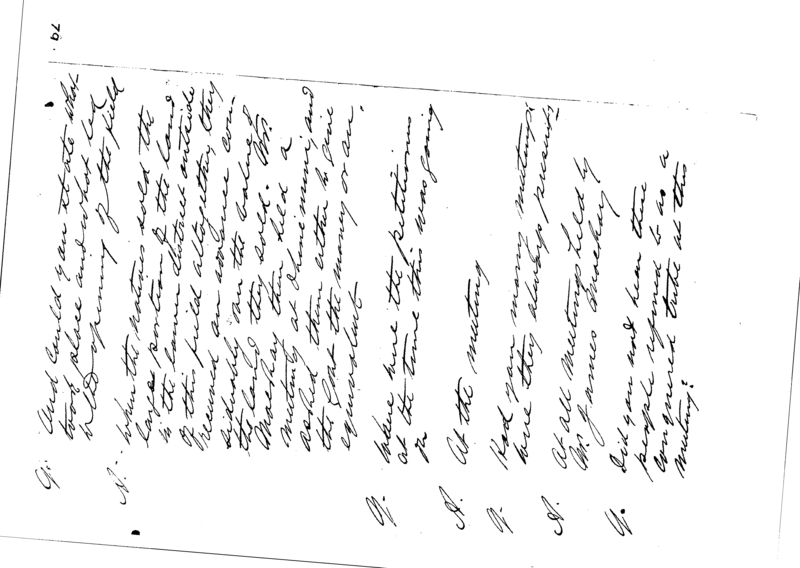 79.
Q. And could you state what
took place and what led
up to opening of the field
A. When the natives sold the
large portion of the land
in the same district outside
of this field altogether, they
received an advance con-
siderably on the value of
the land they sold. Mr.
Mackay then held a
meeting at and
asked them either to give
the Govt the money or an
equivalent
Q. Where were the petitioners
at the time this was going
on
A. At the meeting
Q. Had you many meetings
were they always present?
A. At all meetings held by
Mr. James Mackay
Q. Did you not hear these
people referred to as a
conquered tribe at this
meeting?